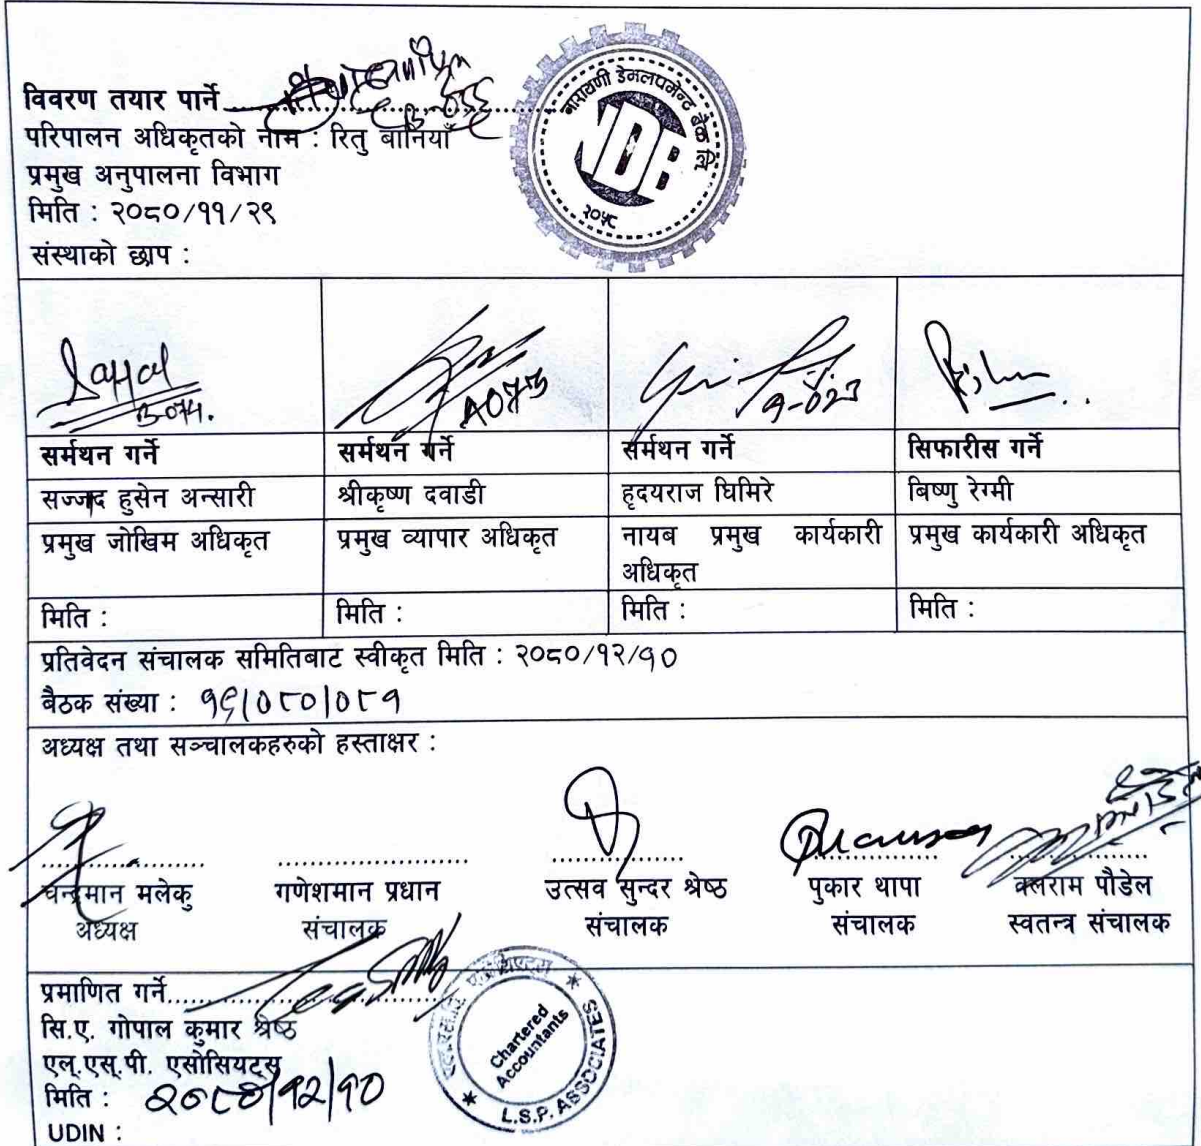 विवरण तयार पार्ने
परिपालन अधिकृतको नाम : रितु बानियाँ
प्रमुख अनुपालना विभाग
मिति : २०८०/११/२९
संस्थाको छाप :
नारायणी डेभलपमेन्ट बैंक लि
NDB
२०५८
सर्मथन गर्ने सर्मथन गर्ने सर्मथन गर्ने सिफारीस गर्ने
सज्जाद हुसेन अन्सारी श्रीकृष्ण दवाडी हृदयराज घिमिरे बिष्णु रेग्मी
प्रमुख जोखिम अधिकृत प्रमुख व्यापार अधिकृत नायब प्रमुख कार्यकारी अधिकृत प्रमुख कार्यकारी अधिकृत
मिति : मिति : मिति : मिति :
प्रतिवेदन संचालक समितिबाट स्वीकृत मिति : २०८०/१२/१०
बैठक संख्या : १९/०८०/०८१
अध्यक्ष तथा सञ्चालकहरुको हस्ताक्षर :
चन्द्रमान मलेकु गणेशमान प्रधान उत्सव सुन्दर श्रेष्ठ पुकार थापा बलराम पौडेल
अध्यक्ष संचालक संचालक संचालक स्वतन्त्र संचालक
प्रमाणित गर्ने
सि.ए. गोपाल कुमार श्रेष्ठ
एल्.एस्.पी. एसोसियट्स्
मिति : २०८०/१२/१०
UDIN :
Chartered
Accountants
L.S.P. ASSOCIATES